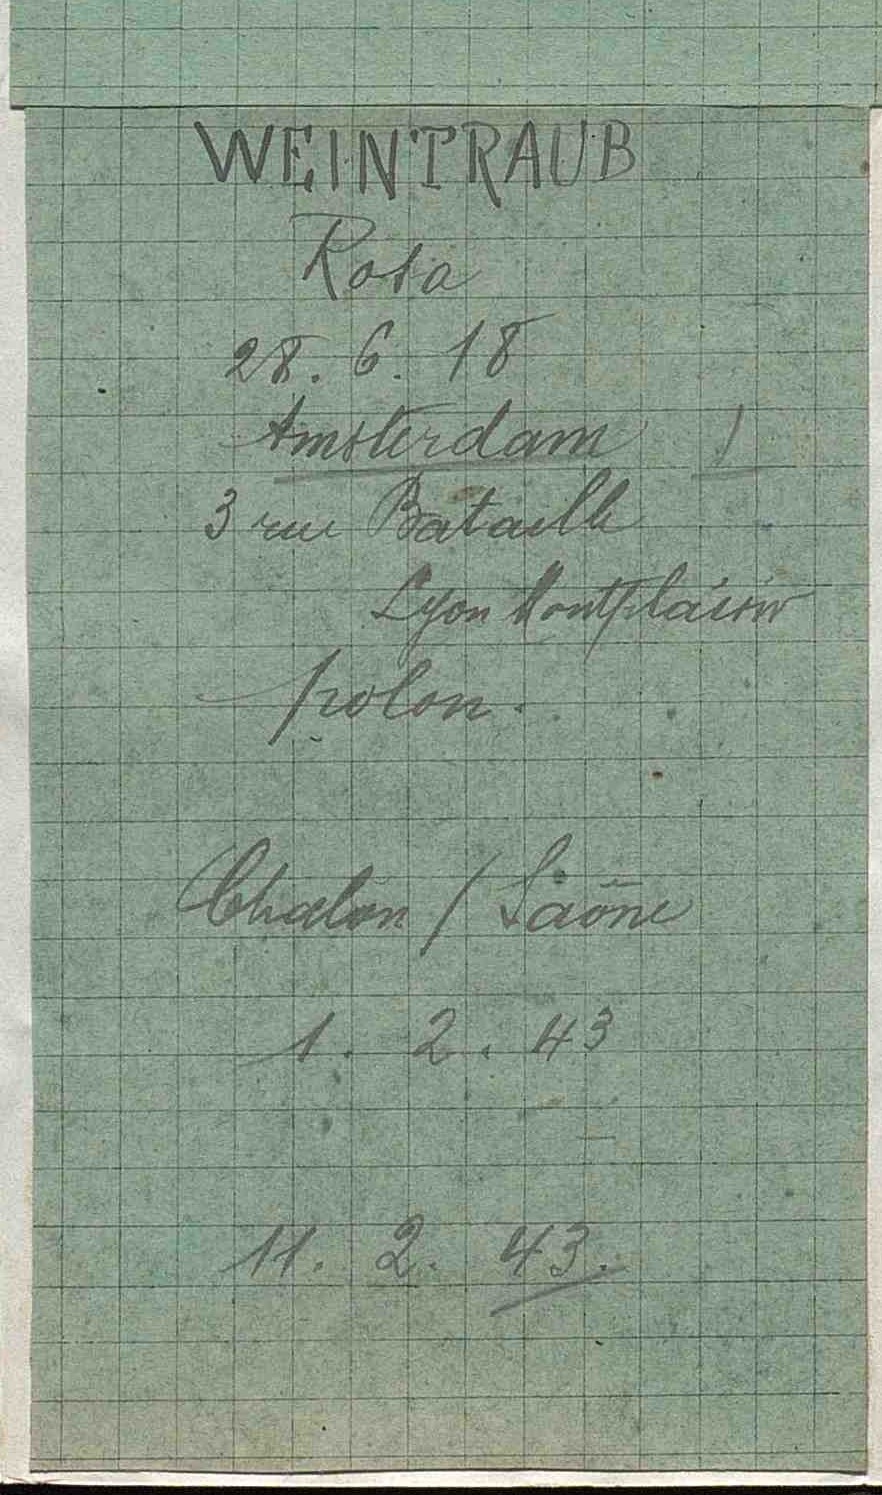 WEINTRAUB
Rosa
28. 6. 18
Amsterdam
3 rue Bataille
Lyon Montplaisir
polon.
Chalon / Saône
1. 2. 43
11. 2. 43.